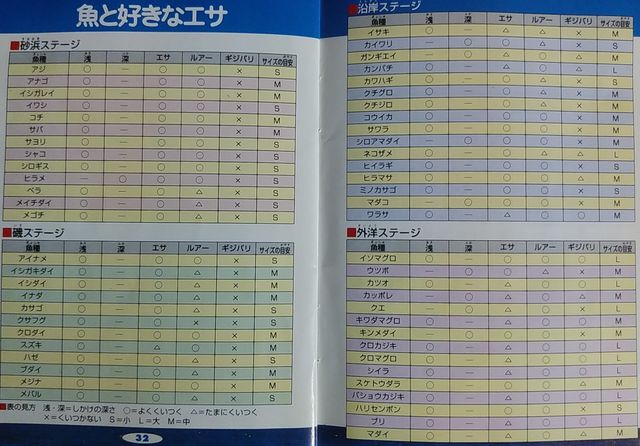 魚と好きなエサ
■砂浜ステージ
魚種 浅 深 エサ ルアー ギジバリ サイズの目安
アジ ○ — ○ ○ × S
アナゴ ○ — ○ ○ × M
イシガレイ ○ — ○ ○ × M
イワシ ○ — ○ ○ × S
コチ ○ — ○ ○ × M
サバ ○ — ○ ○ × M
サヨリ ○ — ○ ○ × S
シャコ ○ — ○ ○ × S
シロギス ○ — ○ ○ × S
ヒラメ — ○ ○ ○ × M
ベラ ○ — ○ △ × S
メイチダイ ○ — ○ △ × S
メゴチ ○ — ○ △ × S
■磯ステージ
魚種 浅 深 エサ ルアー ギジバリ サイズの目安
アイナメ ○ — ○ ○ × S
イシガキダイ ○ — ○ △ × M
イシダイ ○ — ○ △ × M
イナダ ○ — ○ △ × M
カサゴ ○ — ○ ○ × S
クサフグ ○ — ○ × × S
クロダイ ○ — ○ ○ × M
スズキ ○ — △ ○ × M
ハゼ ○ — ○ △ × S
ブダイ ○ — ○ △ × M
メジナ ○ — ○ ○ × M
メバル ○ — ○ △ × S
■表の見方 浅・深=しかけの深さ ○=よくくいつく △=たまにくいつく
×=くいつかない S=小 L=大 M=中
32
■沿岸ステージ
魚種 浅 深 エサ ルアー ギジバリ
イサキ ○ — △ △ × M
カイワリ — ○ ○ △ × S
ガンギエイ — ○ △ ○ △ M
カンパチ ○ — ○ △ △ L
カワハギ ○ — ○ ○ × S
クチグロ ○ — ○ △ × M
クチジロ ○ — ○ △ × M
コウイカ ○ — ○ ○ × M
サワラ ○ — ○ ○ × M
シロアマダイ — ○ ○ ○ × M
ネコザメ ○ — ○ △ △ L
ヒイラギ ○ — ○ ○ × S
ヒラマサ ○ — ○ ○ △ M
ミノカサゴ ○ — ○ ○ × S
マダコ — ○ ○ ○ × M
ワラサ ○ — △ ○ ○ M
■外洋ステージ
魚種 浅 深 エサ ルアー ギジバリ サイズの目安
イソマグロ ○ — ○ ○ ○ L
ウツボ — ○ ○ △ × M
カツオ ○ — △ ○ ○ L
カッポレ — ○ △ ○ ○ M
クエ — ○ △ ○ × L
キワダマグロ ○ — △ ○ ○ L
キンメダイ — ○ ○ ○ × M
クロカジキ ○ — △ ○ ○ L
クロマグロ ○ — △ ○ ○ L
シイラ ○ — △ ○ ○ L
スケトウダラ — ○ △ ○ ○ M
バショウカジキ ○ — △ ○ ○ L
ハリセンボン — ○ ○ ○ × S
ブリ ○ — △ ○ ○ M
マダイ — ○ △ ○ ○ M